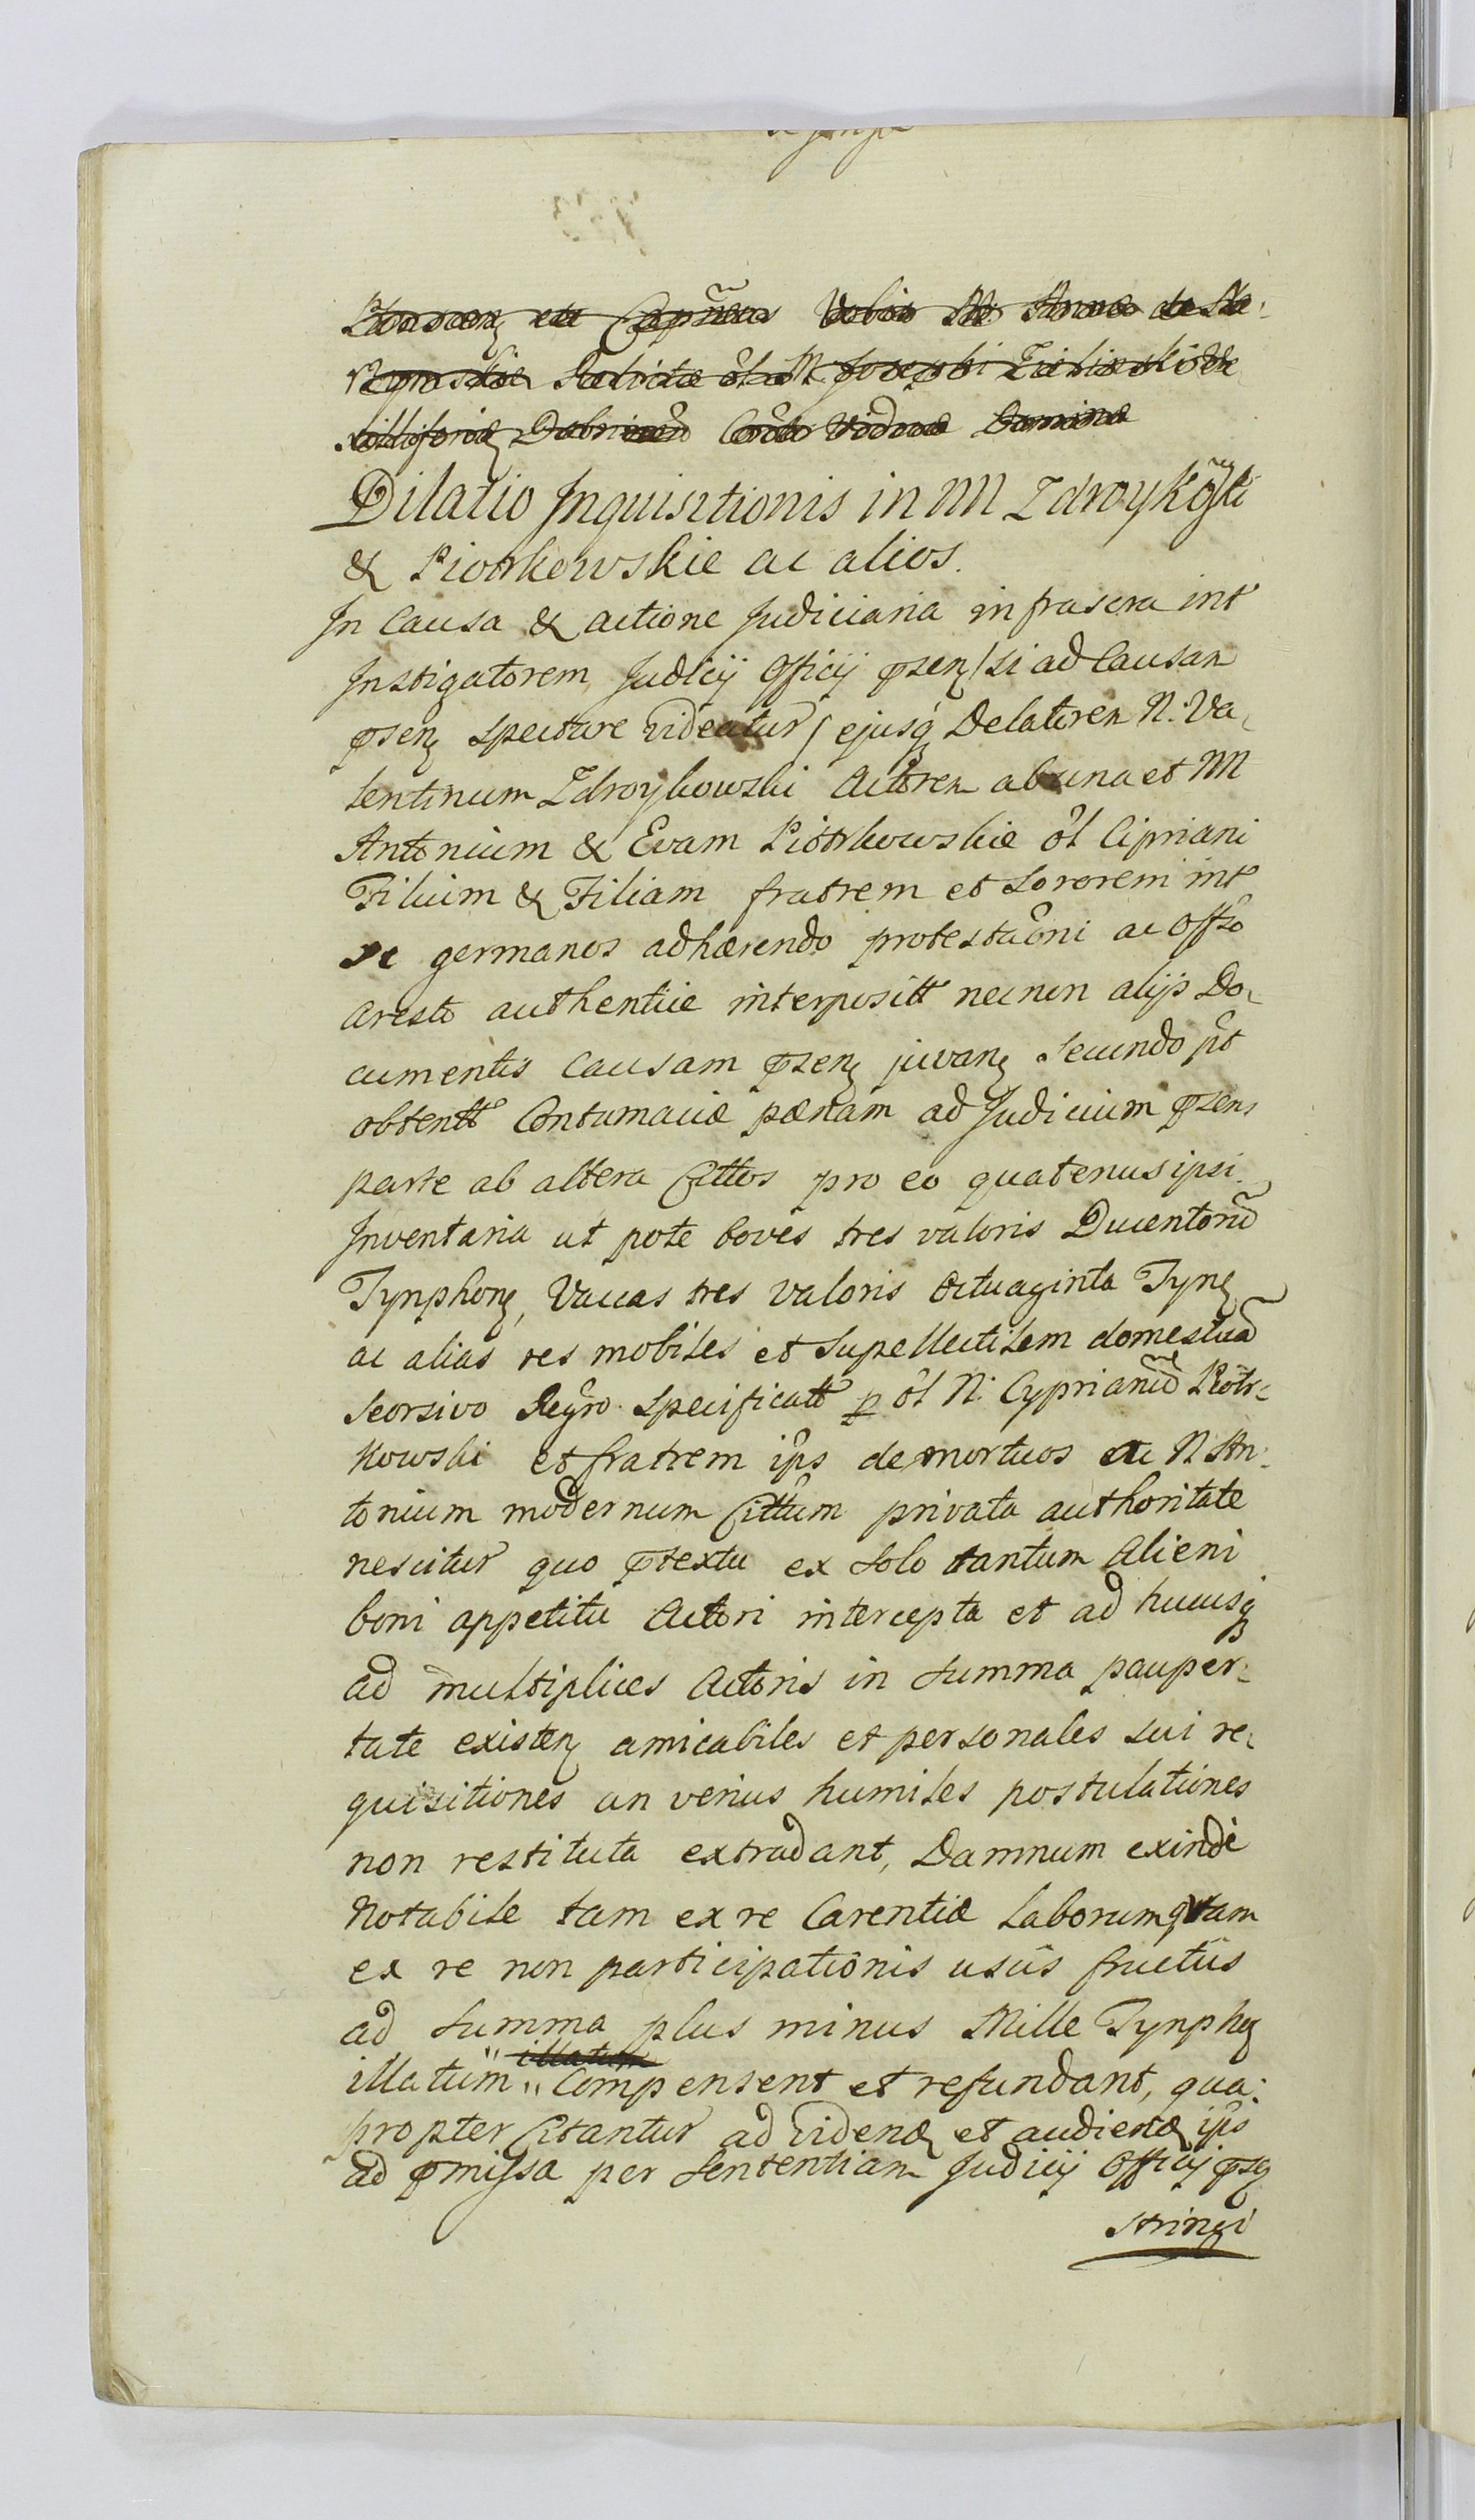 Dilatio Inquisitionis in NN Zdroykowski
& Piotrkowskie ac alios.
In Causa & actione Judiciaria infrascra int
Instigatorem Judicij Officij pseņ / si ad Causan
pseņ spectare videatur / ejusq Delatoren N. Va-
lentinum Zdroykowski Actoren ab una et NN
Antonium & Evam Piotrkowskie ol Cipriani
Filium & Filiam fratrem et Sororem int
se germanos adhærendo protestaoni ac Offso
aresto authentice interpositt necnon alijs Do-
cumentis Causam pseņ juvaņ Secundo pt
obtentt Contumaciæ pænam ad Judicium psen
parte ab altera Cittos pro eo quatenus ipsi
Inventaria ut pote boves tres valoris Ducentoru
Tynphoņ, Vaccas tres valoris Octuaginta Tynę
ac alias res mobiles et Supellectilem domesticā
Seorsivo Regro specificatt p ol N. Cyprianū Piotr-
kowski et fratrem ips demortuos ac N An-
tonium modernum Cittum privata authoritate
nescitur quo ptextu ex solo tantum alieni
boni appetitu Actori intercepta et ad hucusq
ad multiplices Actoris in summa pauper-
tate existeņ amicabiles et personales sui re-
quisitiones an verius humiles postulationes
non restituta extradant, Damnum exinde
Notabile tam ex re Carentiæ Laborum qtam
ex re non participationis usûs fructûs
ad summa plus minus Mille Tynphę
illatum
illatum " Compensent et refundant, qua-
propter Citantur ad videnđ et audienđ ips
ad pmissa per Sententian Judicij Officij psę
stringi